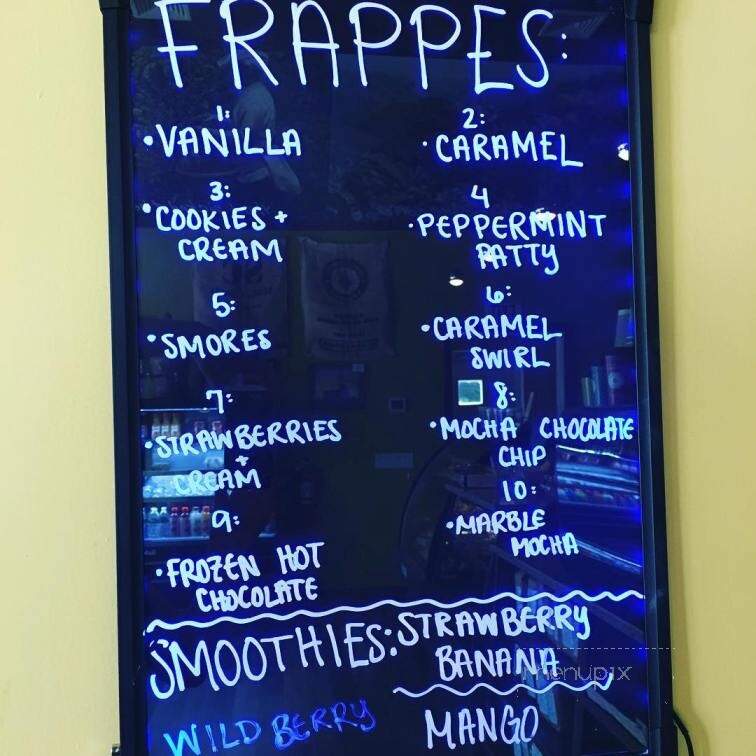 FRAPPES:
1:
• VANILLA
2:
• CARAMEL
3:
• COOKIES +
CREAM
4
• PEPPERMINT
PATTY
5:
• SMORES
6:
• CARAMEL
SWIRL
7:
• STRAWBERRIES
+
CREAM
8:
• MOCHA CHOCOLATE
CHIP
9:
• FROZEN HOT
CHOCOLATE
10:
• MARBLE
MOCHA
SMOOTHIES: STRAWBERRY
BANANA
WILD BERRY
MANGO
menupix